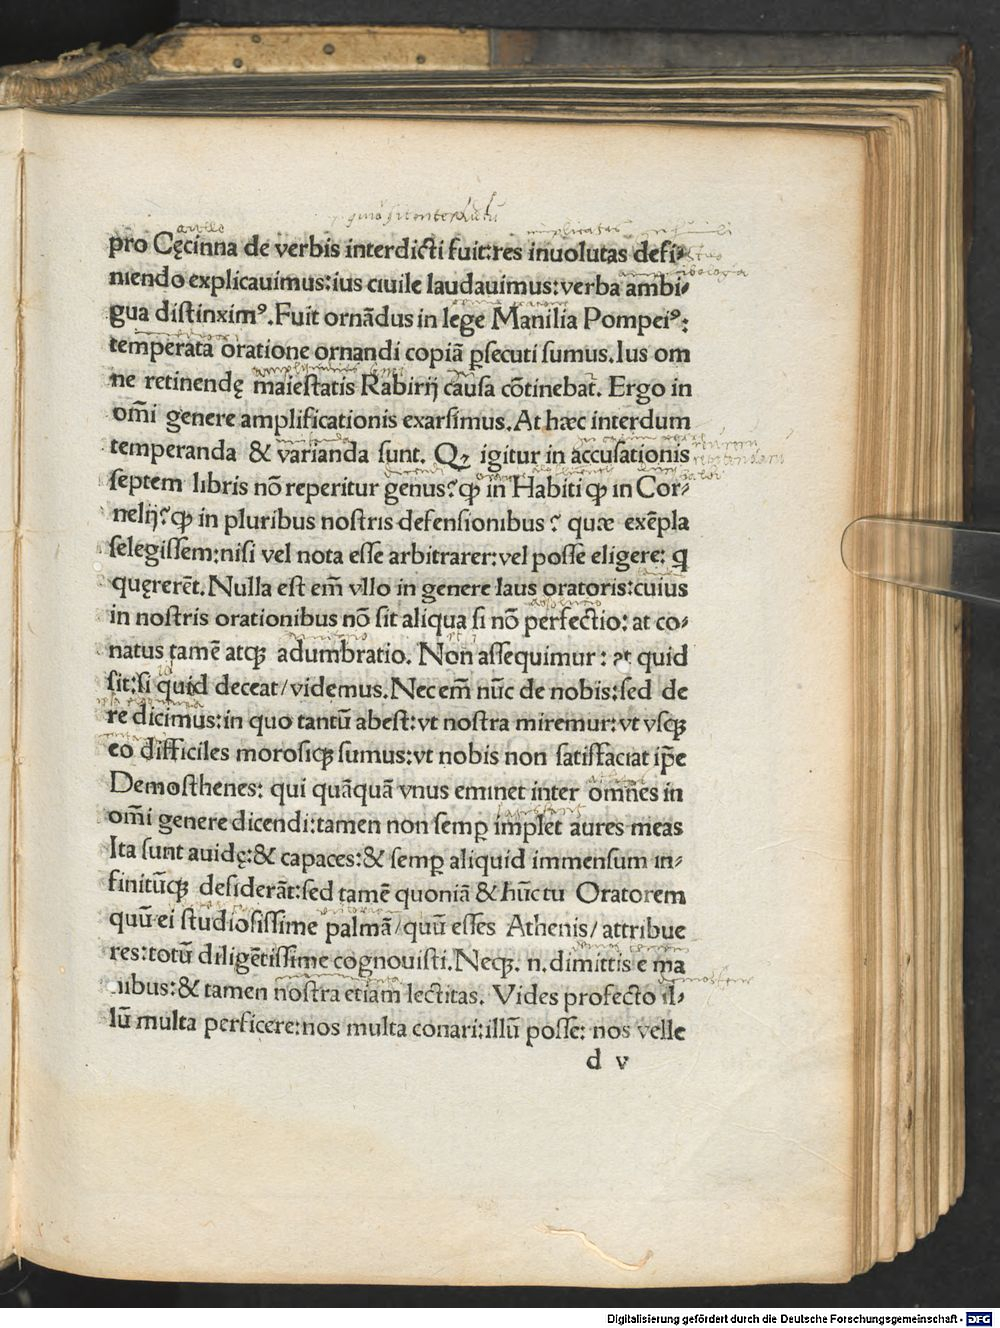 pro Cęcinna de verbis interdicti fuit:res inuolutas defi⸗
niendo explicauimus:ius ciuile laudauimus:verba ambi⸗
gua distinximꝰ.Fuit ornādus in lege Manilia Pompeiꝰ:
temperata oratione ornandi copiā ꝑsecuti sumus.Ius om
ne retinendę maiestatis Rabirij causa cōtinebat. Ergo in
om̄i genere amplificationis exarsimus.At hæc interdum
temperanda & varianda sunt. Qꝫ igitur in accusationis
septem libris nō reperitur genus?ꝙ in Habiti ꝙ in Cor⸗
nelij?ꝙ in pluribus nostris defensionibus? quæ exēpla
selegissem:nisi vel nota esse arbitrarer:vel posse eligere: q
quęrerēt.Nulla est em̄ vllo in genere laus oratoris:cuius
in nostris orationibus nō sit aliqua si nō perfectio: at co⸗
natus tamē atqꝫ adumbratio. Non assequimur: at quid
sit:si quid deceat/videmus.Nec em̄ nūc de nobis:sed de
re dicimus:in quo tantū abest:vt nostra miremur:vt vsqꝫ
eo difficiles morosiqꝫ sumus:vt nobis non satisfaciat ip̄e
Demosthenes: qui quāquā vnus eminet inter omn̄es in
om̄i genere dicendi:tamen non semꝑ implet aures meas
Ita sunt auidę:& capaces:& semꝑ aliquid immensum in⸗
finitūqꝫ desiderāt:sed tamē quoniā & hūc tu Oratorem
quū ei studiosissime palmā/quū esses Athenis/attribue
res:totū diligētissime cognouisti.Neqꝫ .n.dimittis e ma
nibus:& tamen nostra etiam lectitas. Vides profecto il⸗
lū multa perficere:nos multa conari:illū posse: nos velle
d v
Digitalisierung gefördert durch die Deutsche Forschungsgemeinschaft - DFG